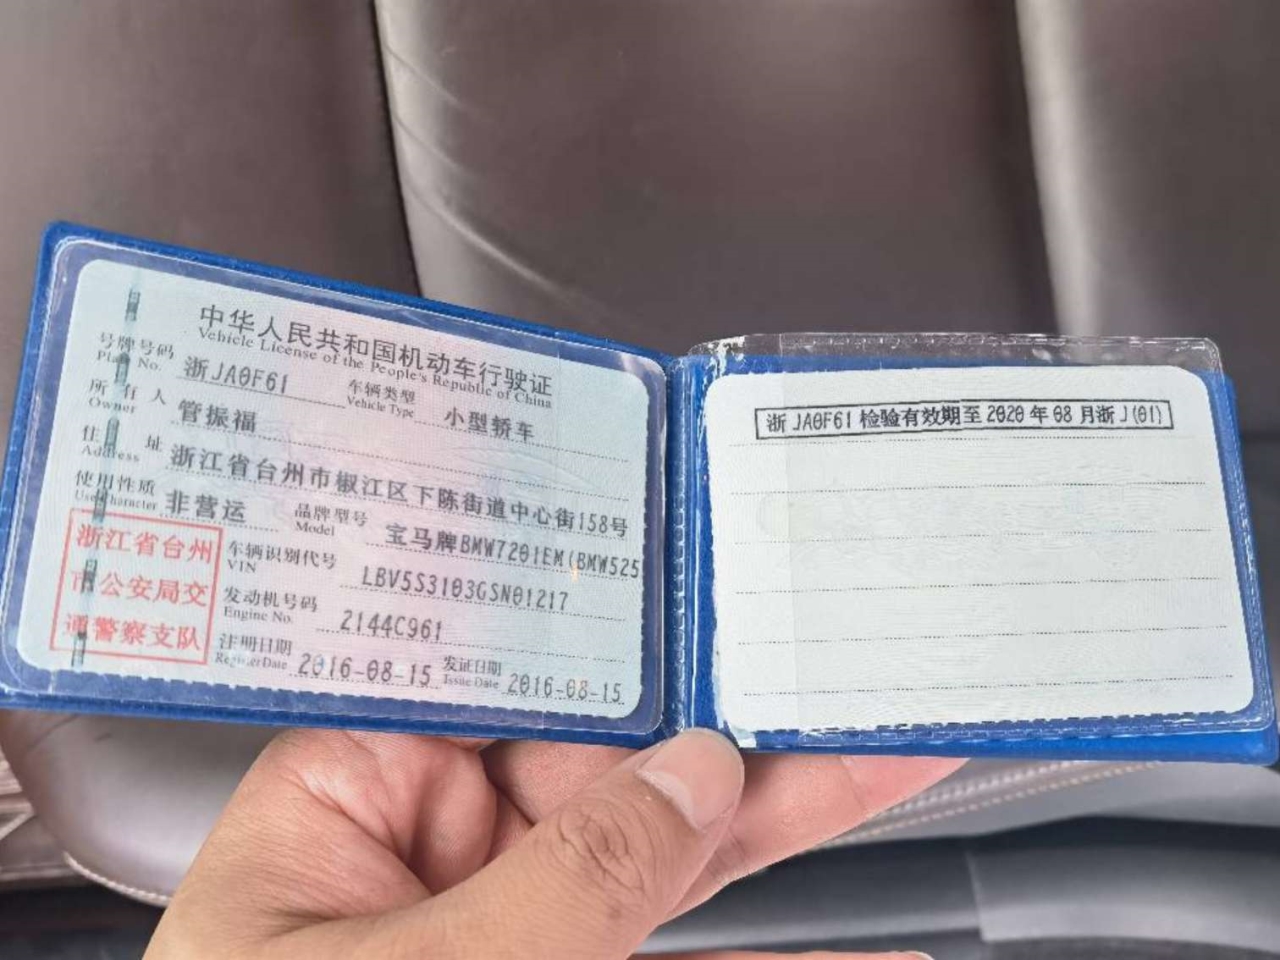 中华人民共和国机动车行驶证
Vehicle License of the People's Republic of China
号牌号码 浙JA0F61 车辆类型 小型轿车
Plate No. Vehicle Type
所有人 管振福
Owner
住址 浙江省台州市椒江区下陈街道中心街158号
Address
使用性质 非营运 品牌型号 宝马牌BMW7201EM(BMW525
Use Character Model
浙江省台州
市公安局交
通警察支队
车辆识别代号 LBV5S3103GSN01217
VIN
发动机号码 2144C961
Engine No.
注册日期 2016-08-15 发证日期 2016-08-15
Register Date Issue Date
浙JA0F61检验有效期至2020年08月浙J(01)